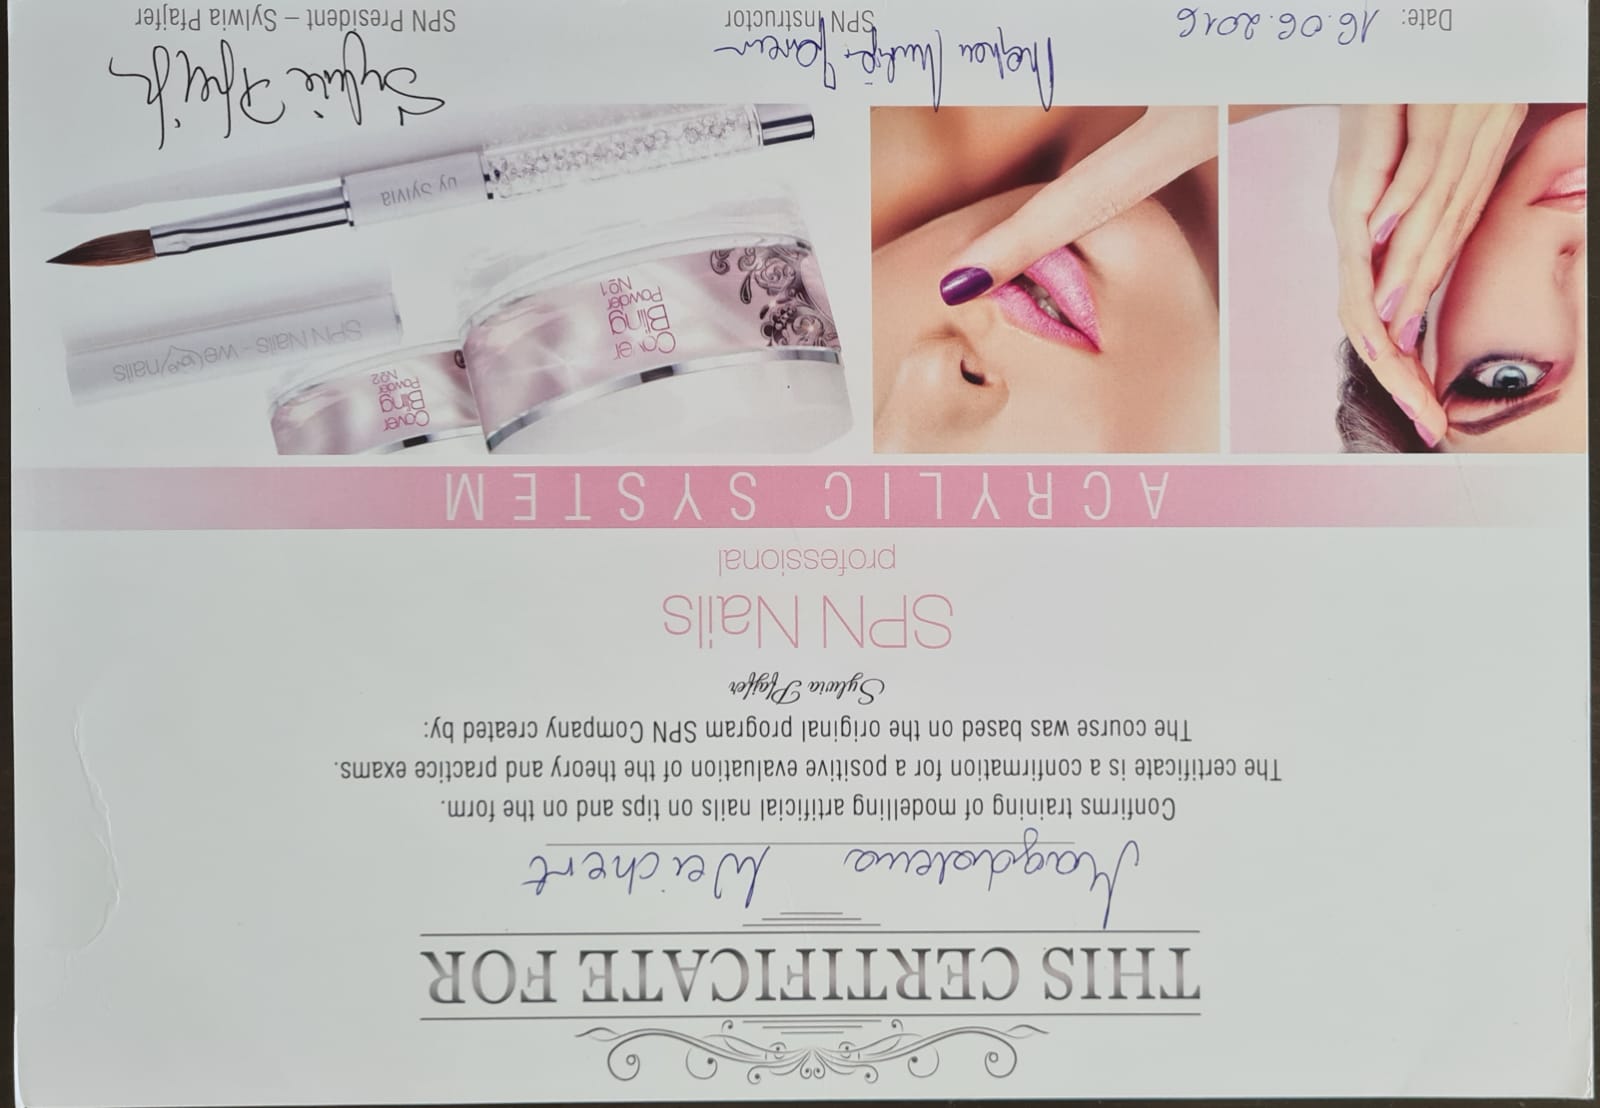 THIS CERTIFICATE FOR
Magdalena Weichert
Confirms training of modelling artificial nails on tips and on the form.
The certificate is a confirmation for a positive evaluation of the theory and practice exams.
The course was based on the original program SPN Company created by:
Sylwia Pfajfer
SPN Nails
professional
ACRYLIC SYSTEM
Cover
Bling
Powder
Nº1
Cover
Bling
Powder
Nº2
SPN Nails - we love nails
by Sylvia
Sylwia Pfajfer
Date: 16.06.2016
SPN Instructor
SPN President – Sylwia Pfajfer